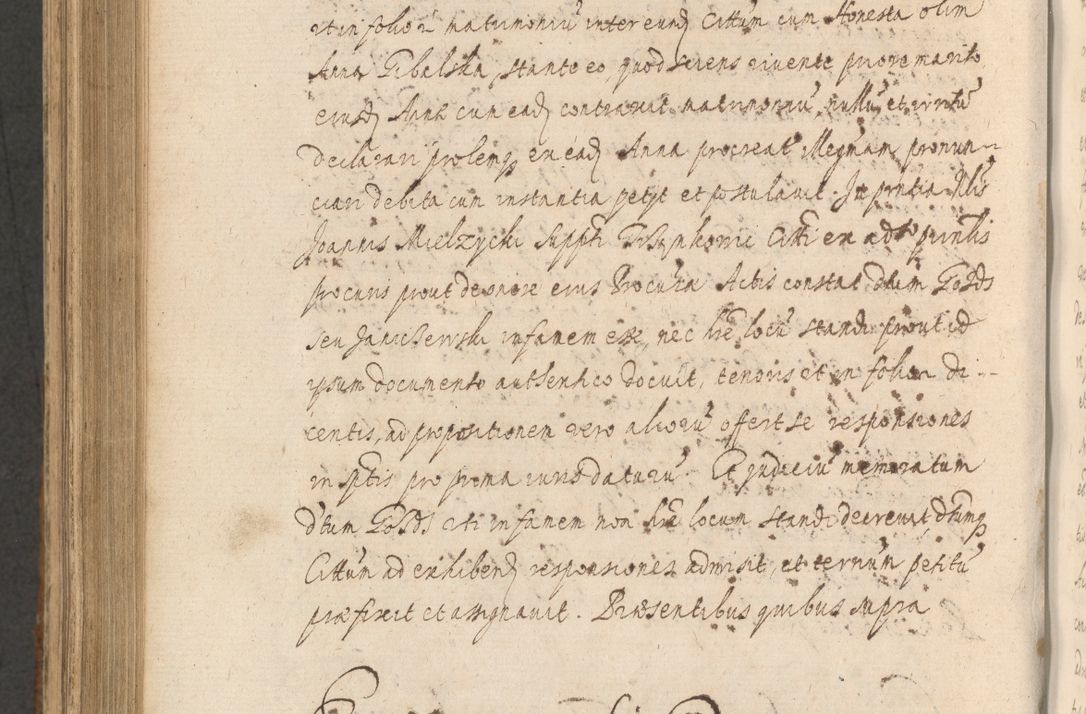 ut in folio 2 matrimoniū inter eund Cittum cum Honesta olim
Anna Gibalska, stante eo, quod sciens vivente priore marito
eiusd Annæ cum ead contraxit matrimoniū, nullū et irritū
declarari prolemq ex ead Anna procreat Illegmam pronun-
ciari debita cum instantia petyt et postulavit. In pntia Nlis
Joannis Mielzycki Suppti Citti ex ad
procuris prout de onore eius Procura Actis constat dtum Gołds
seu Janiszewski infamem esse, nec hre locū standi prout id
ipsum documento authentico docuit, tenoris ut in folio di--
centis, ad propositionem vero aliorū offert se responsiones
in sptis pro prima iuris daturū. Et judiciū memoratum
dtum Gołds uti infamem non hre locum standi decrevit, dtumq
Cittum ad exhibend responsiones admisit, et ternum petitū
præfixit et assignavit. Præsentibus quibus supra